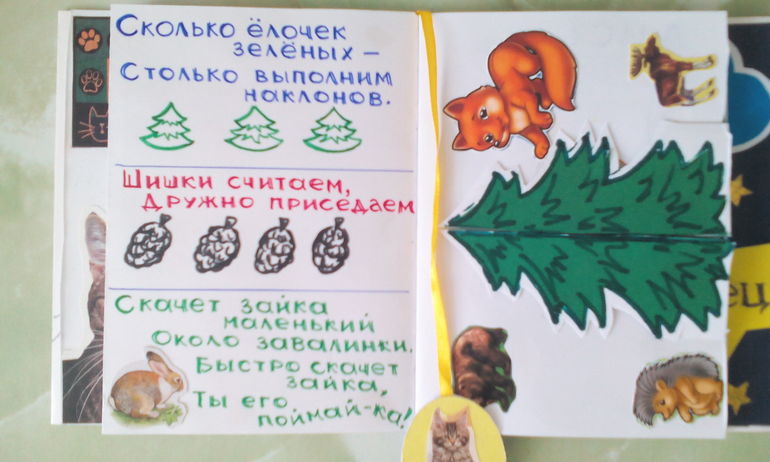 Сколько ёлочек
зелёных –
Столько выполним
наклонов.
Шишки считаем,
Дружно приседаем
Скачет зайка
маленький
Около завалинки.
Быстро скачет
зайка,
Ты его
поймай-ка!
ец